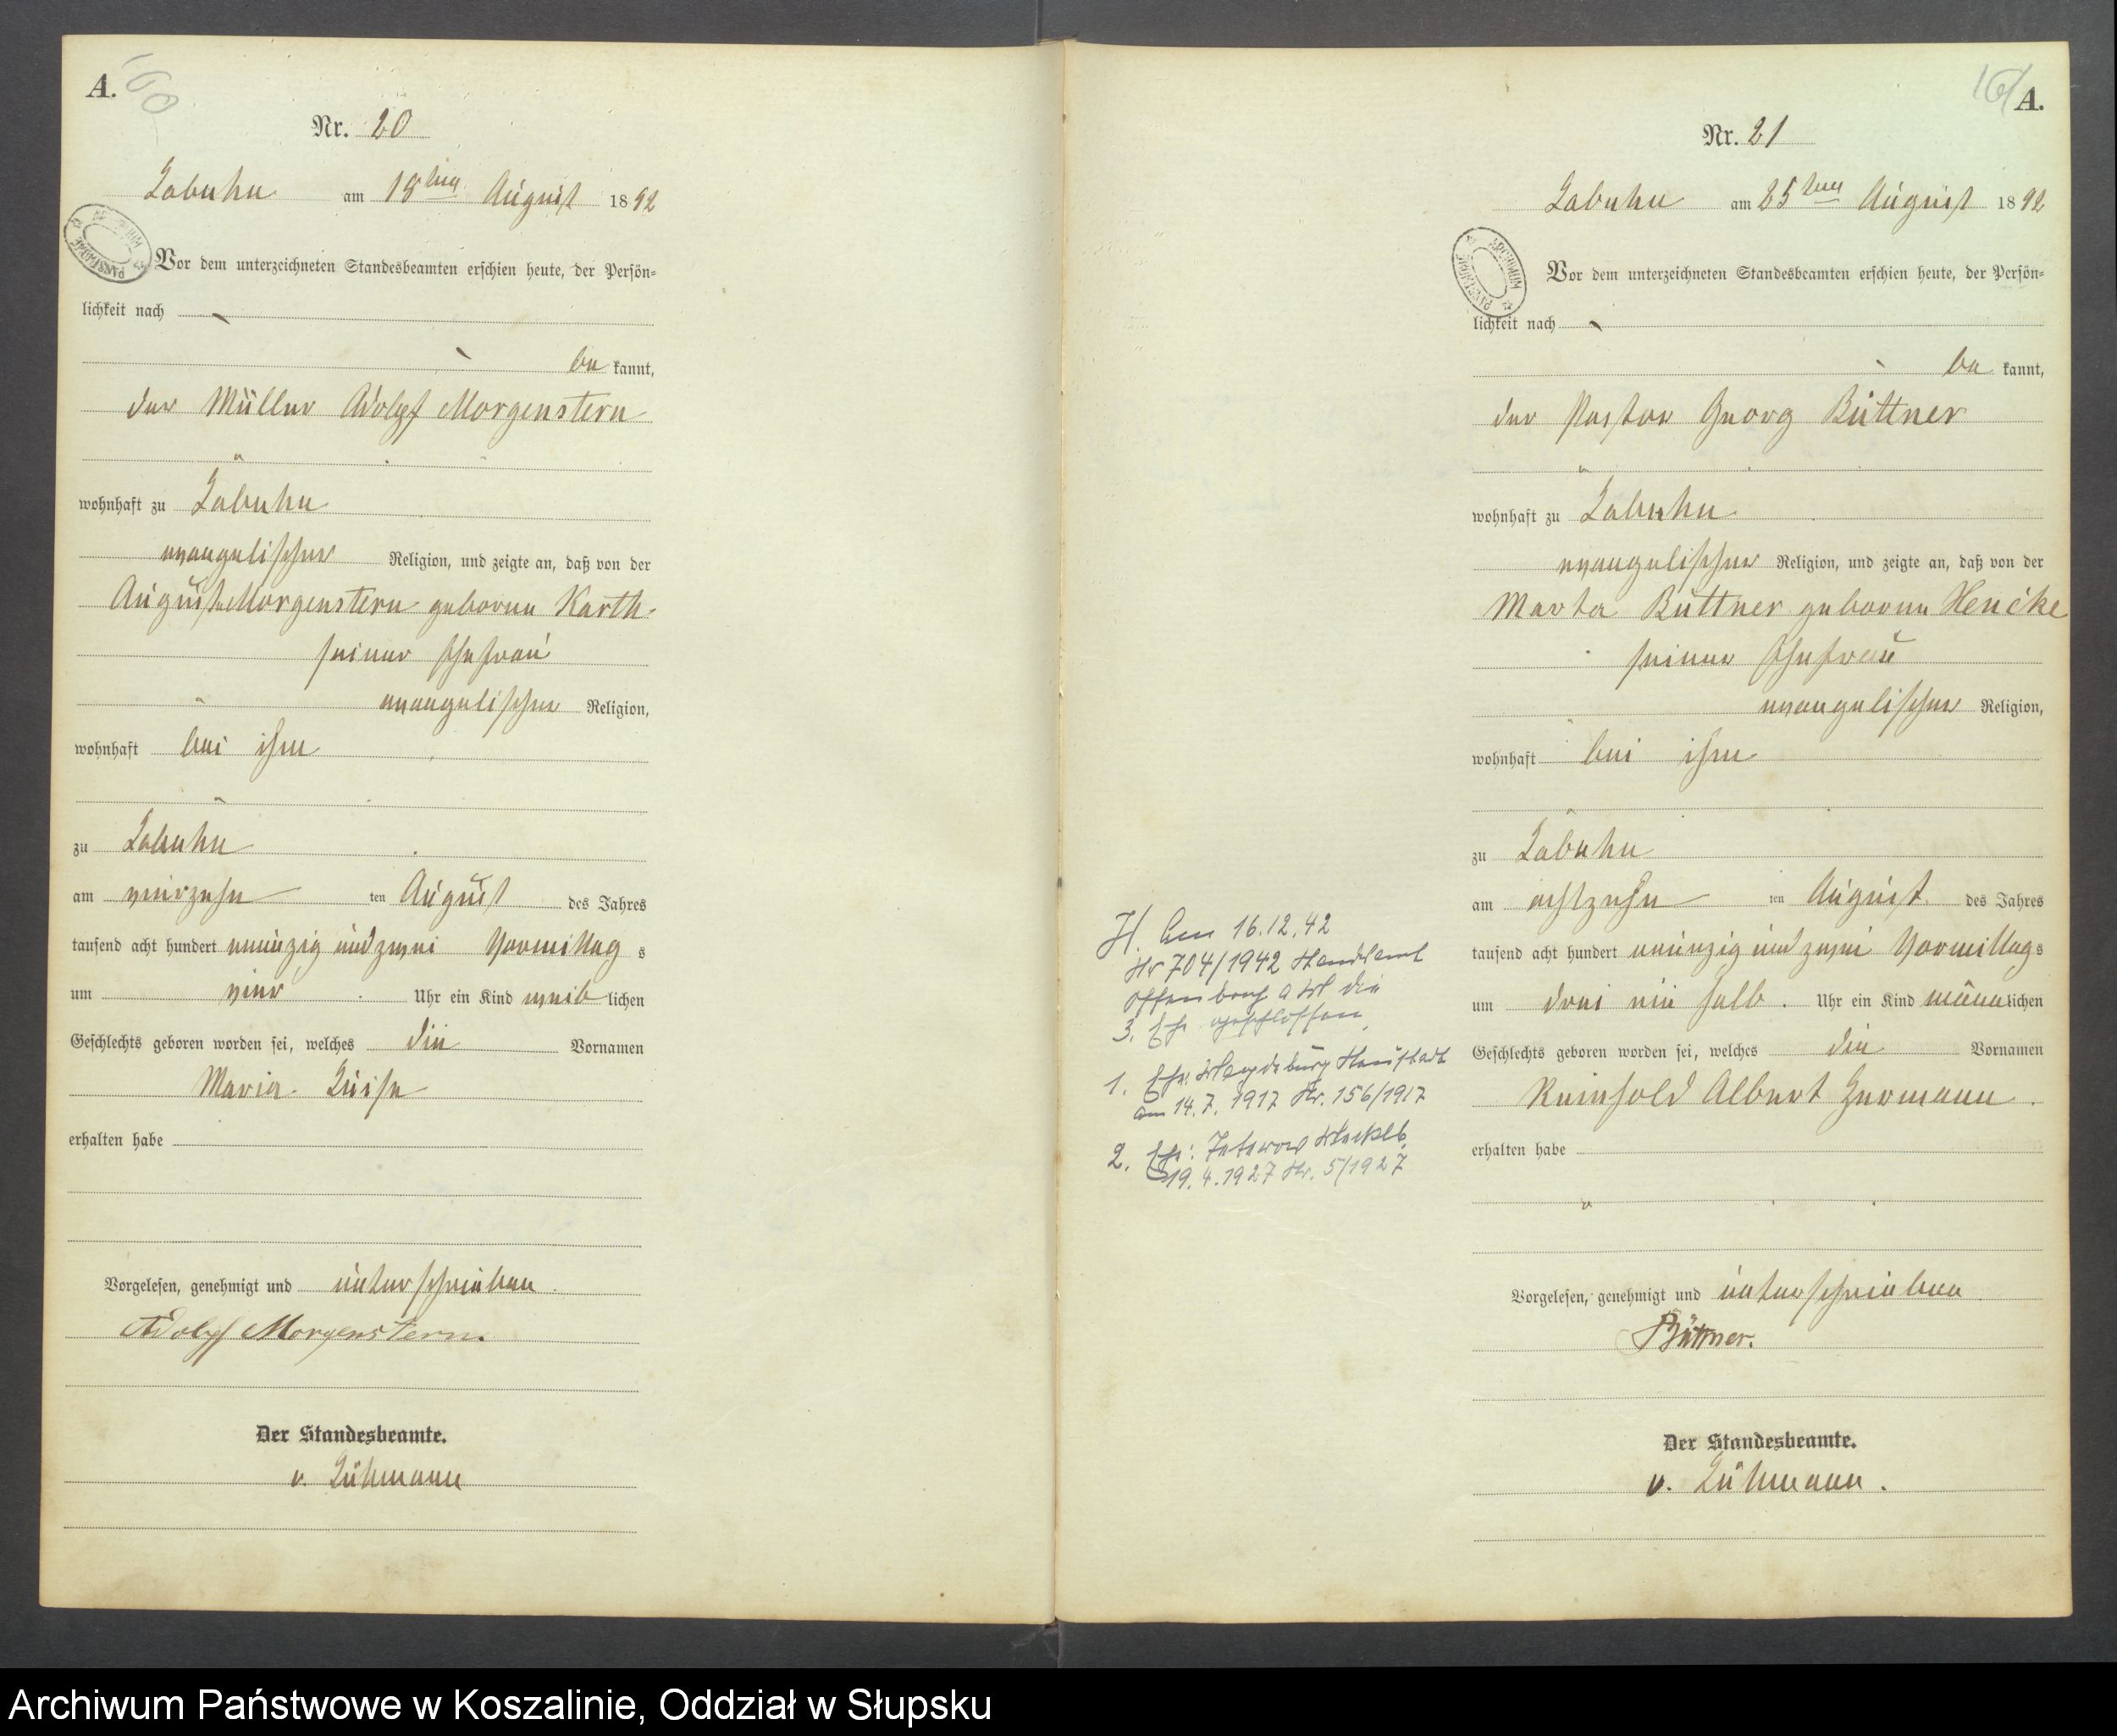 A.
160
Nr. 20
Labuhn am 18ten August 1892
Vor dem unterzeichneten Standesbeamten erschien heute, der Persön=
lichkeit nach
be kannt,
der Müller Adolf Morgenstern
wohnhaft zu Labuhn
evangelischer Religion, und zeigte an, daß von der
Auguste Morgenstern geborene Karth
seiner Ehefrau
evangelischer Religion,
wohnhaft bei ihm
zu Labuhn
am vierzehn ten August des Jahres
tausend acht hundert neunzig und zwei Vormittag s
um vier Uhr ein Kind weib lichen
Geschlechts geboren worden sei, welches die Vornamen
Maria Luise
erhalten habe
Vorgelesen, genehmigt und unterschrieben
Adolf Morgenstern.
Der Standesbeamte.
v. Lühmann
161
A.
Nr. 21
Labuhn am 25ten August 1892
ARCHIWUM PAŃSTWOWE
Vor dem unterzeichneten Standesbeamten erschien heute, der Persön=
lichkeit nach
be kannt,
der Pastor Georg Büttner
wohnhaft zu Labuhn
evangelischer Religion, und zeigte an, daß von der
Marta Büttner geborene Hencke
seiner Ehefrau
evangelischer Religion,
wohnhaft bei ihm
zu Labuhn
am achtzehn ten August des Jahres
tausend acht hundert neunzig und zwei Vormittag s
um drei ein halb . Uhr ein Kind männlichen
Geschlechts geboren worden sei, welches die Vornamen
Reinhold Albert Hermann .
erhalten habe
Vorgelesen, genehmigt und unterschrieben
Büttner.
Der Standesbeamte.
v. Lühmann .
H. Am 16.12.42
Nr 704/1942 Standesamt
Offenbach a M die
3. Ehe geschlossen
1. Ehe: Magdeburg Neustadt
am 14.7.1917 Nr. 156/1917
2. Ehe: Teterow Mecklb.
19.4.1927 Nr. 5/1927
Archiwum Państwowe w Koszalinie, Oddział w Słupsku